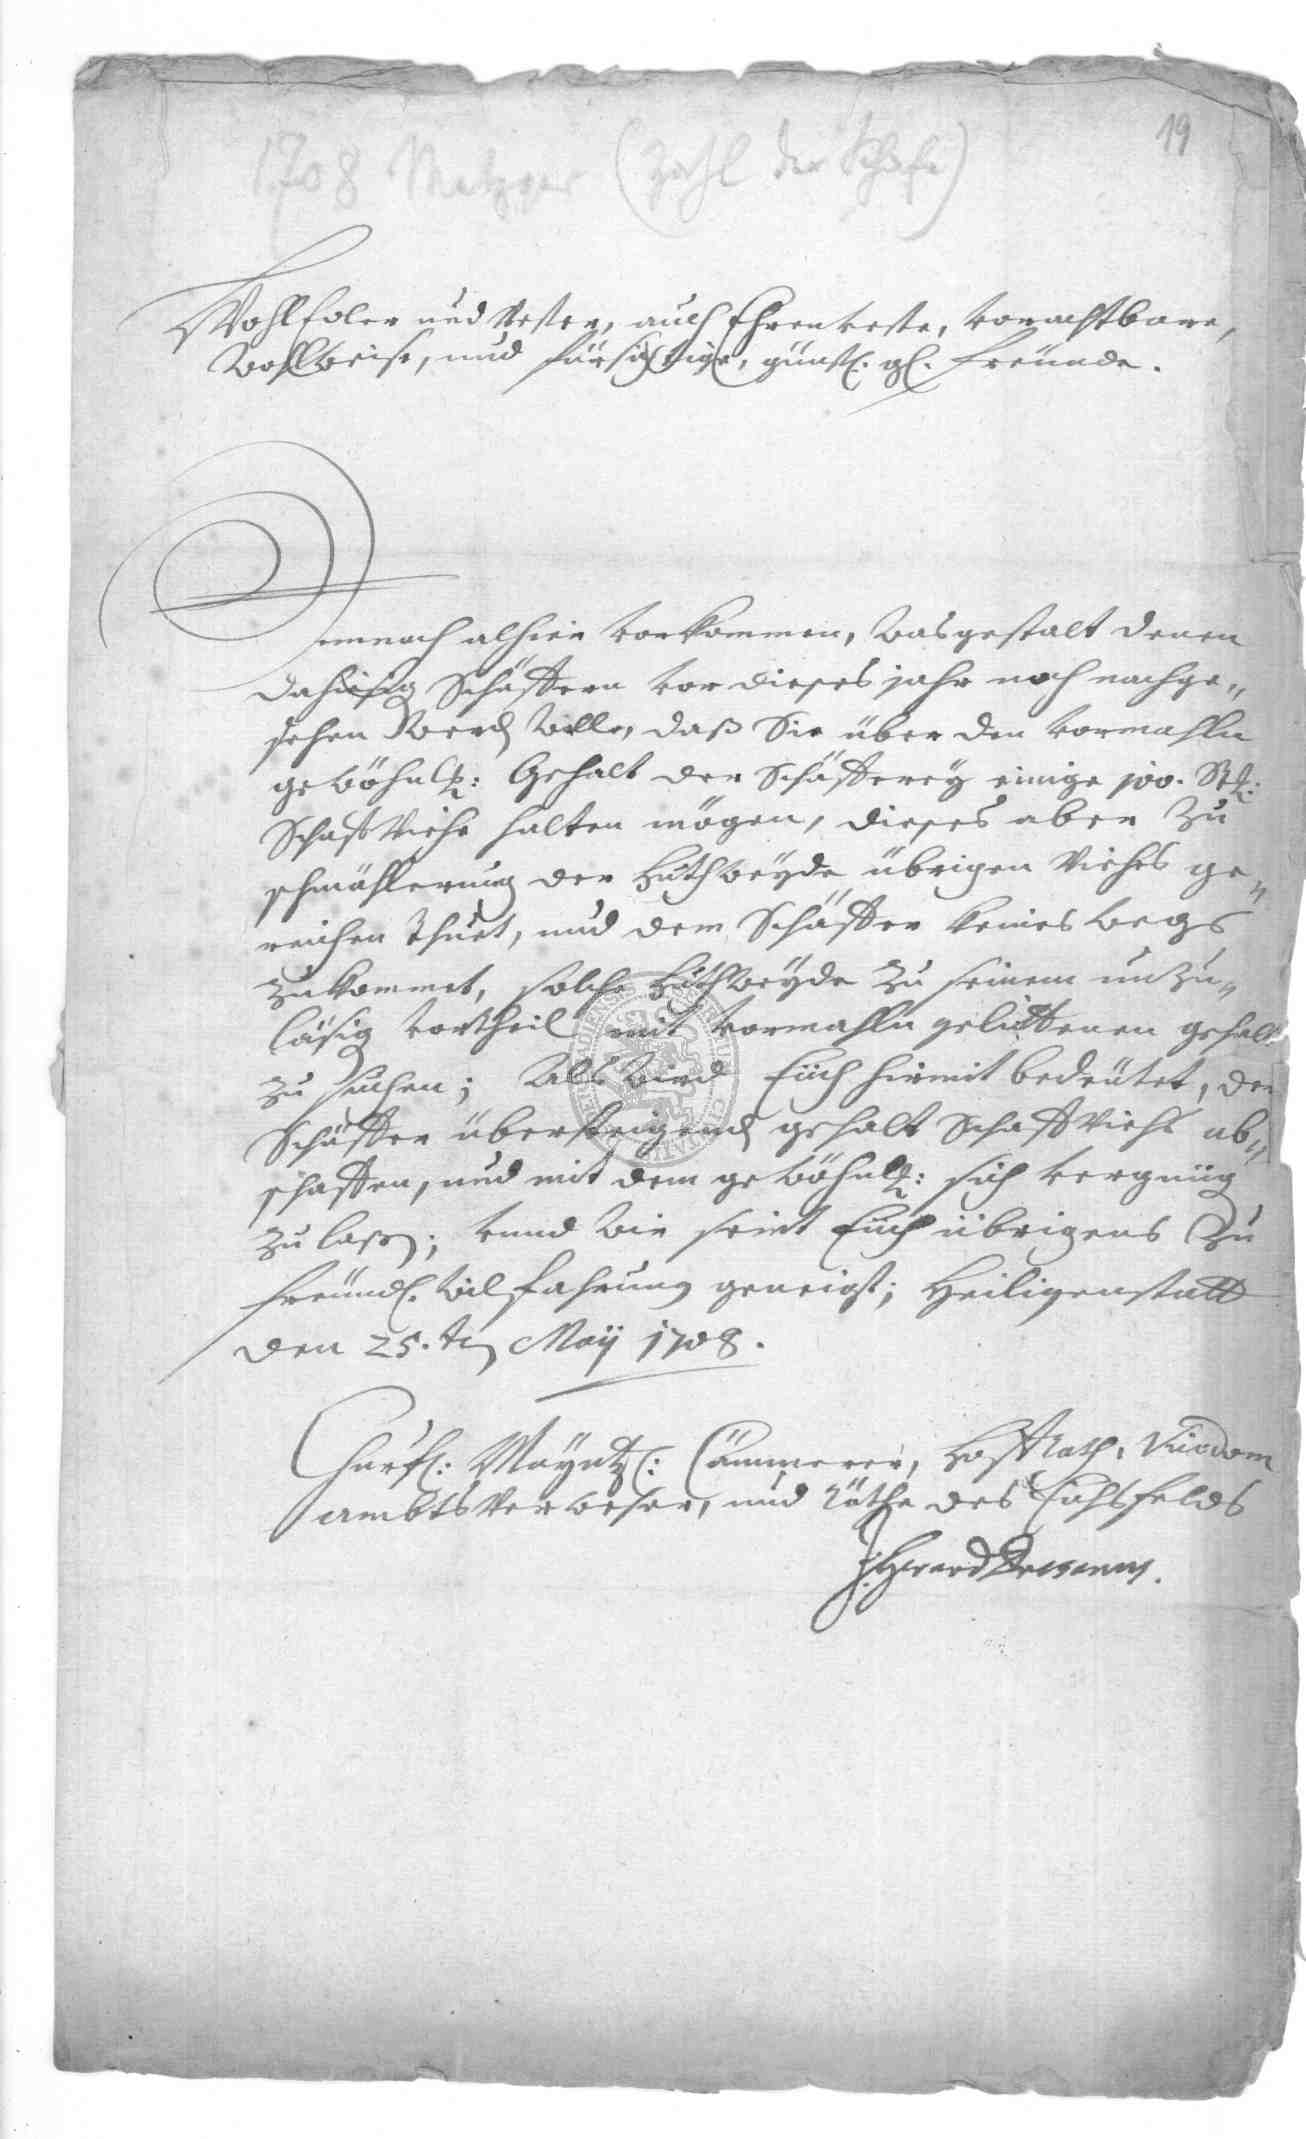 19
1708 Metzger (Zahl der Schafe)
WohlEdler und Vester, auch Ehrenveste, vorachtbare,
Wohlweise, und fürsichtige, günst. gl. freünde.
Demnach alhier vorkommen, wasgestalt denen
dahiesig Schäffern vor dieses jahr noch nachge„
sehen werd wolle, daß Sie über den vormahln
gewöhnl: Gehalt der Schäfferey einige 100. Stk:
Schaff Viehe halten mögen, dieses aber zu
schmählerung der Huthweyde übrigen Viehes ge„
reichen thuet, und dem Schäffer keines wegs
zukommet, solche Huthweyde zu seinem unzu„
läsig vortheil mit vormahln gelittenen gehalt
zu suchen; Als wird Euch hiermit bedeütet, den
Schäffer übersteigend gehalt Schaff Viehe ab„
schaffen, und mit dem gewöhnl: sich vergnüg
zu lasß; vnnd wir seint Euch übrigens zu
freündl. wilfahrung geneigt; Heiligenstatt
den 25.ten Maÿ 1708.
Churf: Mayntz: Cämmerer, HoffRath, Vicedom
ambts Verweser, und Räthe des Eichsfelds